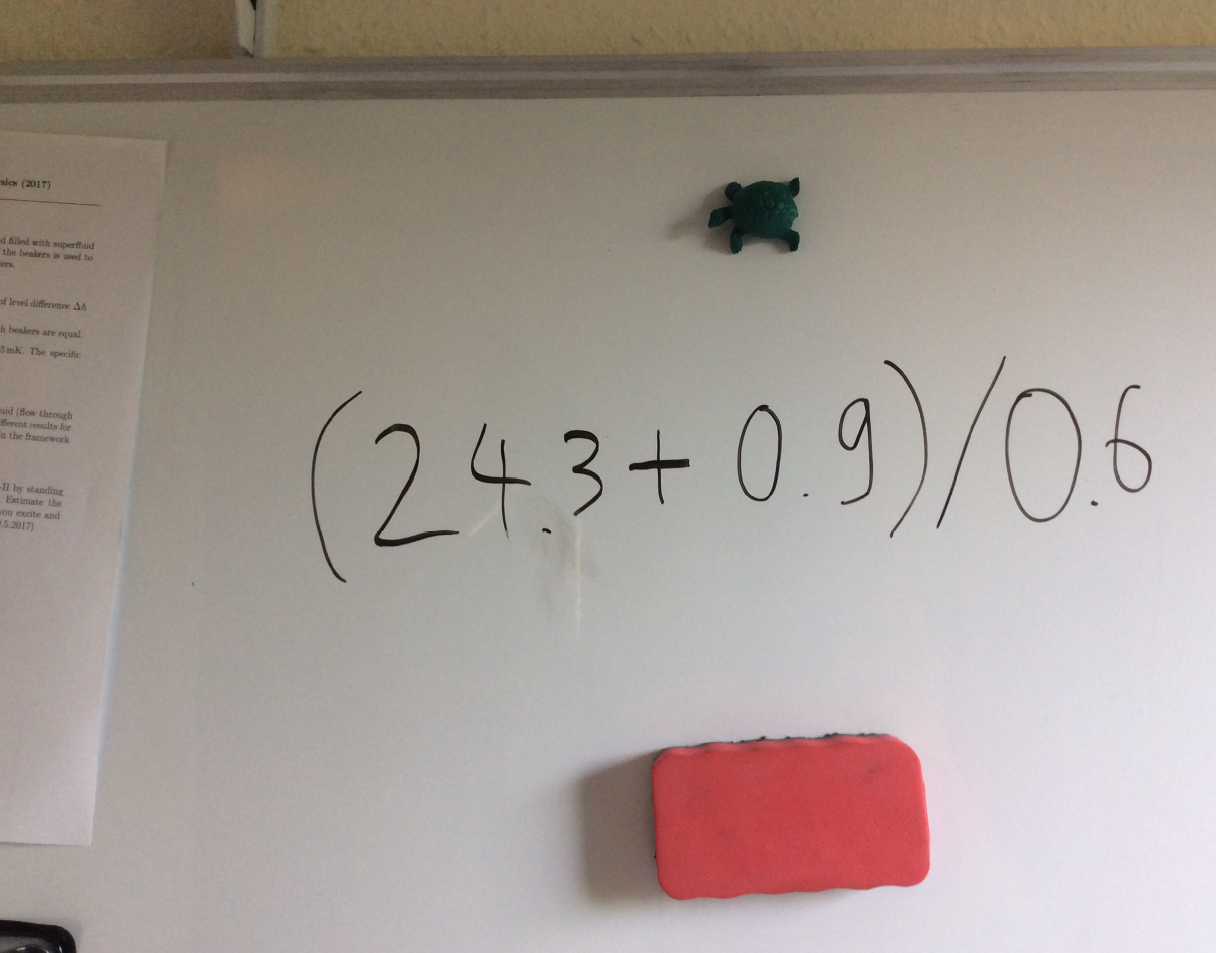 sics (2017)
d filled with superfluid
the beakers is used to
ers.
of level difference Δh
h beakers are equal
5 mK. The specific
uid (flow through
fferent results for
in the framework
-II by standing
Estimate the
you excite and
.5.2017)
(24.3+0.9)/0.6